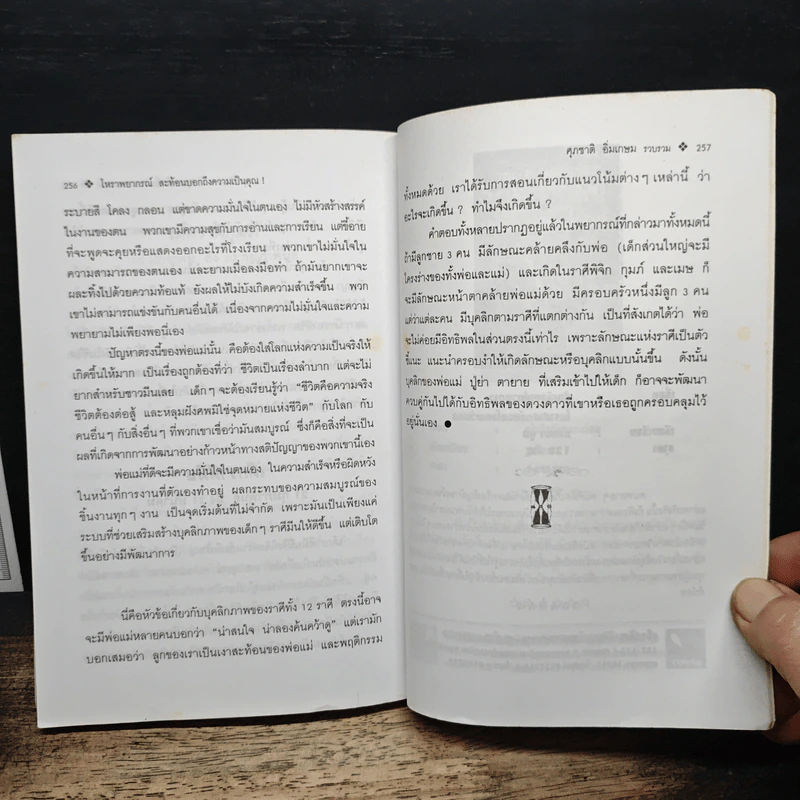 256 ❖ โหราพยากรณ์ สะท้อนบอกถึงความเป็นคุณ !
ระบายสี โคลง กลอน แต่ขาดความมั่นใจในตนเอง ไม่มีหัวสร้างสรรค์
ในงานของตน พวกเขามีความสุขกับการอ่านและการเรียน แต่ขี้อาย
ที่จะพูดจะคุยหรือแสดงออกอะไรที่โรงเรียน พวกเขาไม่มั่นใจใน
ความสามารถของตนเอง และยามเมื่อลงมือทำ ถ้ามันยากเขาจะ
ผละทิ้งไปด้วยความท้อแท้ ยังผลให้ไม่บังเกิดความสำเร็จขึ้น พวก
เขาไม่สามารถแข่งขันกับคนอื่นได้ เนื่องจากความไม่มั่นใจและความ
พยายามไม่เพียงพอนี่เอง
ปัญหาตรงนี้ของพ่อแม่นั้น คือต้องใส่โลกแห่งความเป็นจริงให้
เกิดขึ้นให้มาก เป็นเรื่องถูกต้องที่ว่า ชีวิตเป็นเรื่องลำบาก แต่จะไม่
ยากสำหรับชาวมีนเลย เด็กๆ จะต้องเรียนรู้ว่า "ชีวิตคือความจริง
ชีวิตต้องต่อสู้ และหลุมฝังศพมิใช่จุดหมายแห่งชีวิต" กับโลก กับ
คนอื่นๆ กับสิ่งอื่นๆ ที่พวกเขาเชื่อว่ามันสมบูรณ์ ซึ่งก็คือสิ่งที่จะเป็น
ผลที่เกิดจากการพัฒนาอย่างก้าวหน้าทางสติปัญญาของพวกเขานี้เอง
พ่อแม่ที่ดีจะมีความมั่นใจในตนเอง ในความสำเร็จหรือผิดหวัง
ในหน้าที่การงานที่ตัวเองทำอยู่ ผลกระทบของความสมบูรณ์ของ
ชิ้นงานทุกๆ งาน เป็นจุดเริ่มต้นที่ไม่จำกัด เพราะมันเป็นเพียงแค่
ระบบที่ช่วยเสริมสร้างบุคลิกภาพของเด็กๆ ราศีมีนให้ดีขึ้น แต่เติบโต
ขึ้นอย่างมีพัฒนาการ
นี่คือหัวข้อเกี่ยวกับบุคลิกภาพของราศีทั้ง 12 ราศี ตรงนี้อาจ
จะมีพ่อแม่หลายคนบอกว่า "น่าสนใจ น่าลองค้นคว้าดู" แต่เรามัก
บอกเสมอว่า ลูกของเราเป็นเงาสะท้อนของพ่อแม่ และพฤติกรรม
ศุภชาติ อิ่มเกษม รวบรวม ❖ 257
ทั้งหมดด้วย เราได้รับการสอนเกี่ยวกับแนวโน้มต่างๆ เหล่านี้ ว่า
อะไรจะเกิดขึ้น ? ทำไมจึงเกิดขึ้น ?
คำตอบทั้งหลายปรากฏอยู่แล้วในพยากรณ์ที่กล่าวมาทั้งหมดนี้
ถ้ามีลูกชาย 3 คน มีลักษณะคล้ายคลึงกับพ่อ (เด็กส่วนใหญ่จะมี
โครงร่างของทั้งพ่อและแม่) และเกิดในราศีพิจิก กุมภ์ และเมษ ก็
จะมีลักษณะหน้าตาคล้ายพ่อแม่ด้วย มีครอบครัวหนึ่งมีลูก 3 คน
แต่ว่าแต่ละคน มีบุคลิกตามราศีที่แตกต่างกัน เป็นที่สังเกตได้ว่า พ่อ
จะไม่ค่อยมีอิทธิพลในส่วนตรงนี้เท่าไร เพราะลักษณะแห่งราศีเป็นตัว
ชี้แนะ แนะนำครอบงำให้เกิดลักษณะหรือบุคลิกแบบนั้นขึ้น ดังนั้น
บุคลิกของพ่อแม่ ปู่ย่า ตายาย ที่เสริมเข้าไปให้เด็ก ก็อาจจะพัฒนา
ควบคู่กันไปได้กับอิทธิพลของดวงดาวที่เขาหรือเธอถูกครอบคลุมไว้
อยู่นั่นเอง ●